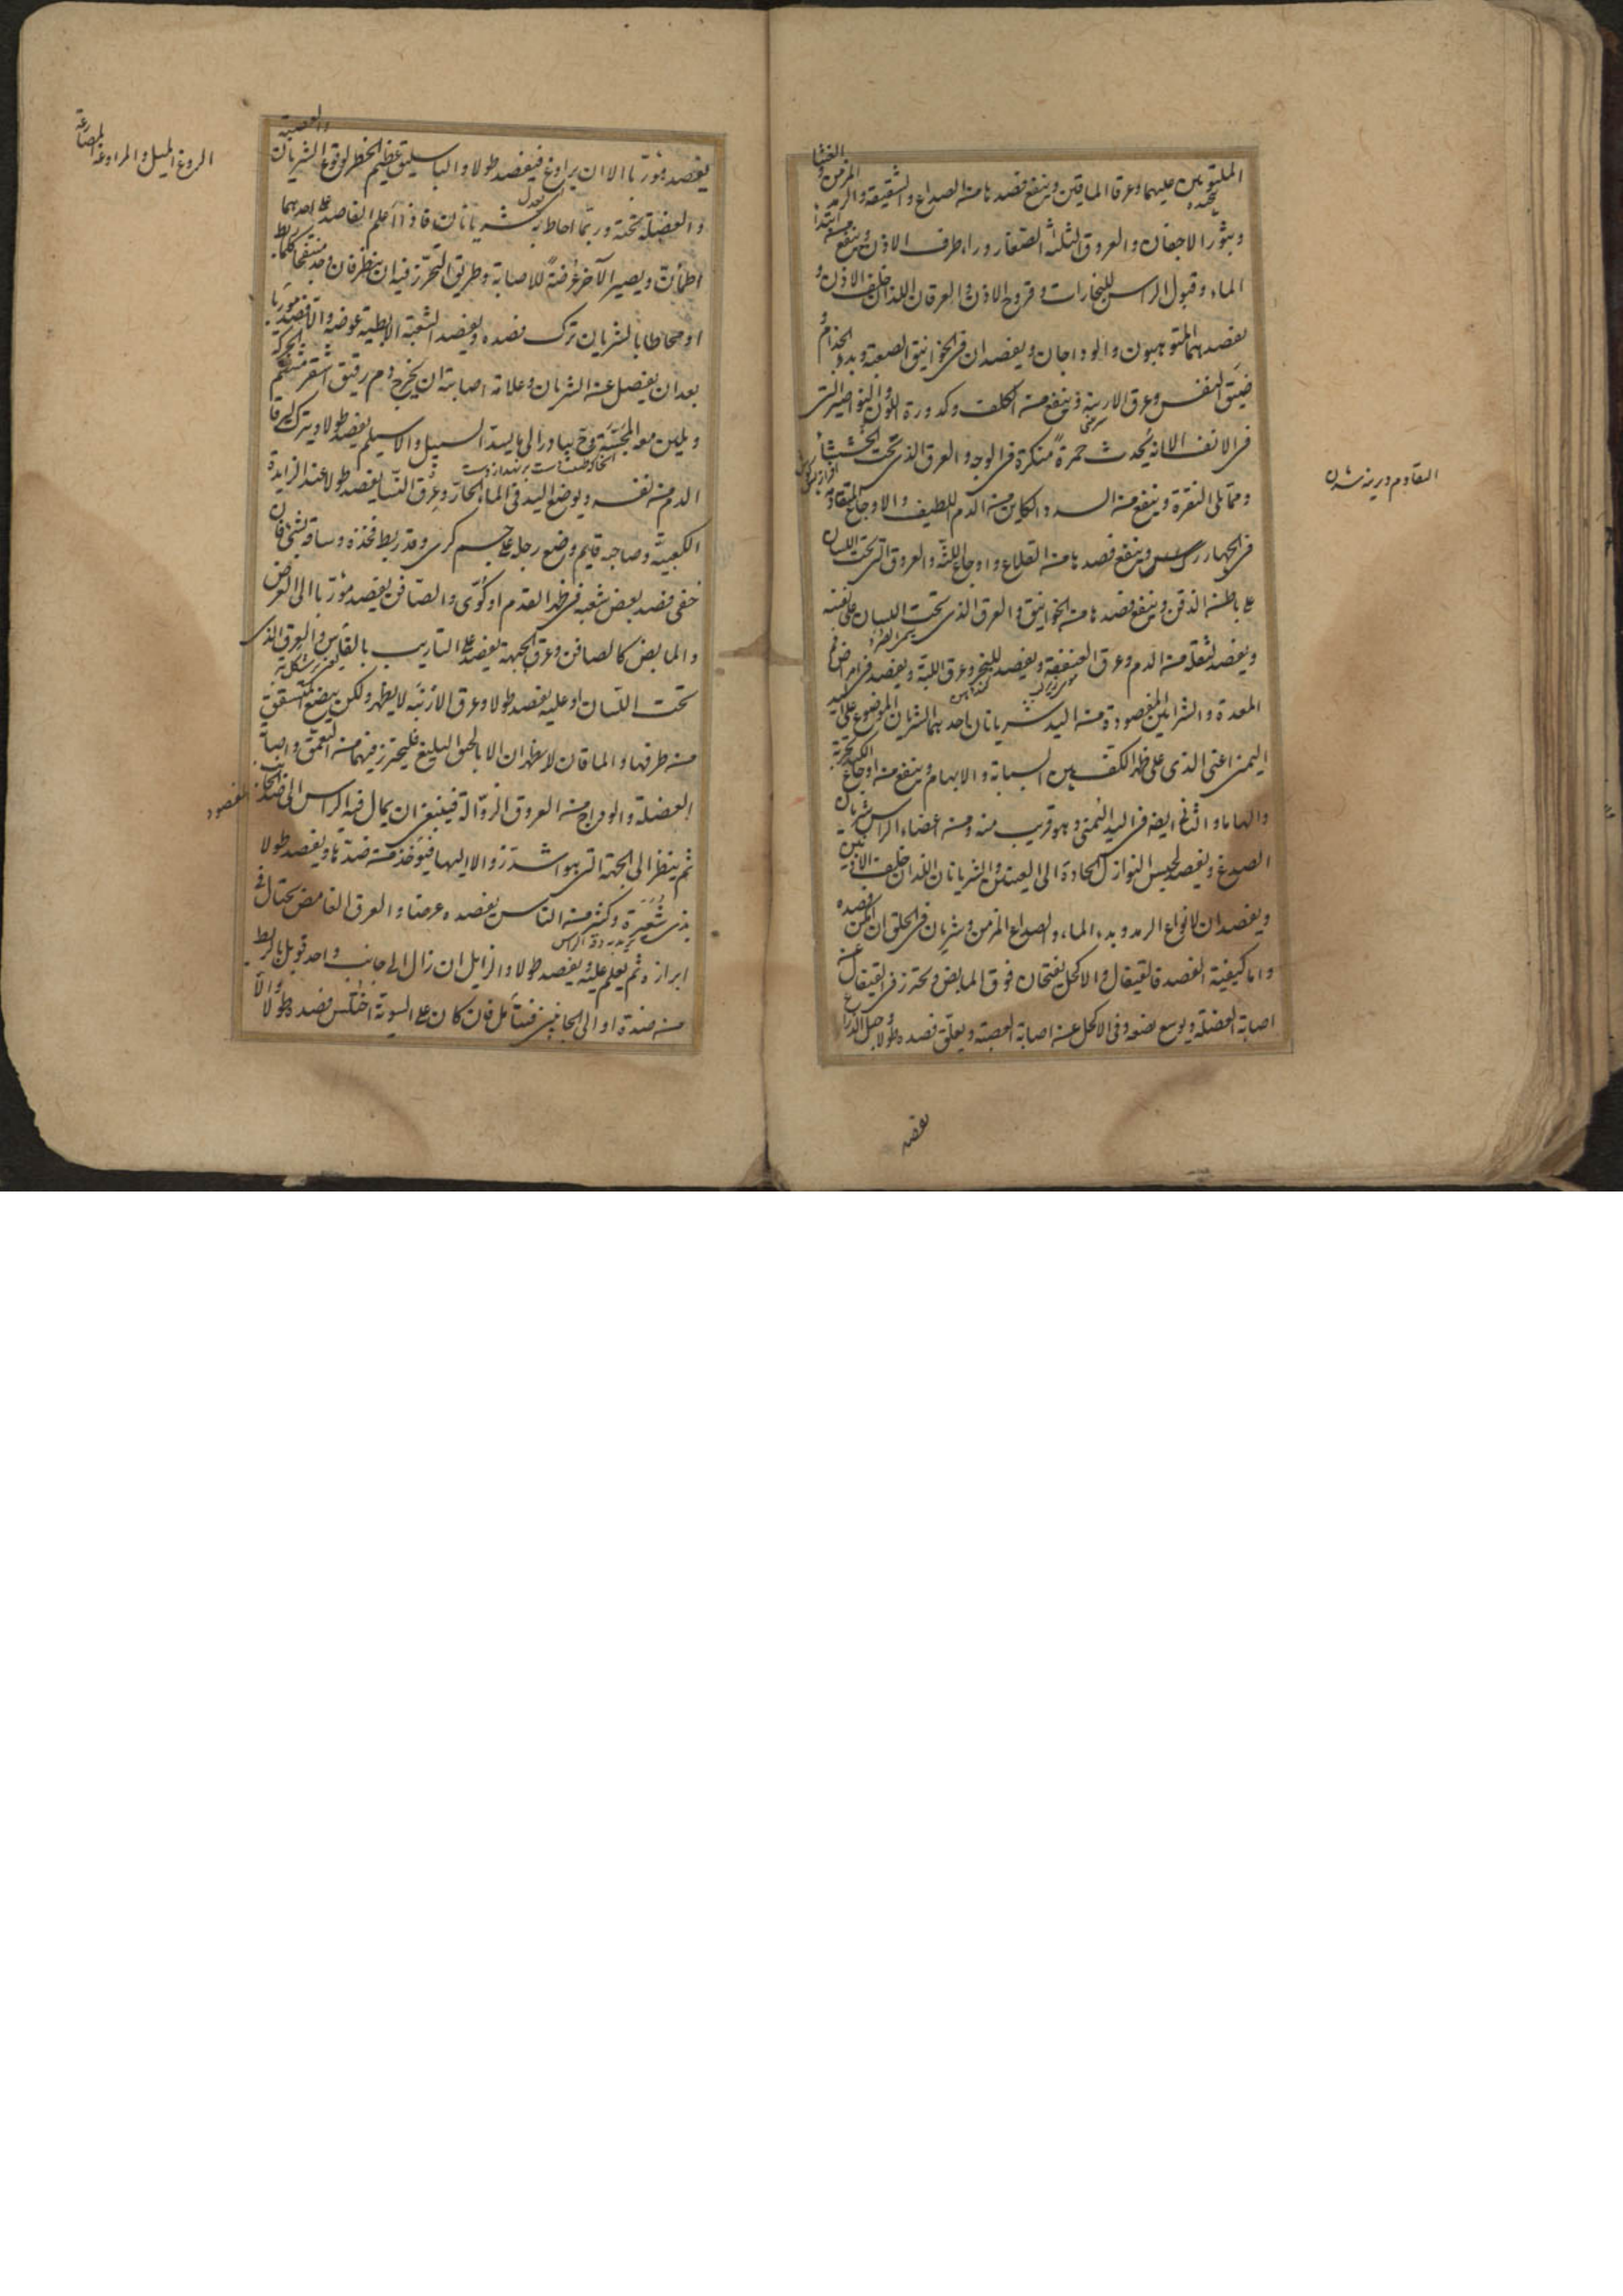 الملتويين عليهما وعرقا الماقين وينفع فصدها من الصداع والشقيقة والرمد المزمن والغشا
وبثور الاجفان والعروق الثلثة الصغار وراء طرف الاذن وينفع من ابتداء
الماء وقبول الراس للبخارات وقروح الاذن والعرقان اللذان خلف الاذن و
يفصدهما المتوهبون والوداجان ويفصدان في الخوانيق الصعبة وبدء الجذام و
ضيق النفس وعرق الارنبة وينفع من الكلف وكدورة اللون والبواصير التي
في الانف الا انه يحدث حمرة منكرة في الوجه والعرق الذي تحت الخششا
ومما يلي النقرة وينفع من السدر الكاين من الدم اللطيف والاوجاع المتقادمة
في الجهار رك وينفع فصدها من القلاع واوجاع اللثة والعروق التي تحت اللسان
على باطن الذقن وينفع فصدها من الخوانيق والعرق الذي تحت اللسان على نفسه
ويفصد لثقله من الدم وعرق العنفقة ويفصد للبخر وعرق اللبة ويفصد في امراض فم
المعدة والشرايين المفصودة من اليد شريانان احدهما الشريان الموضوع على اليد
اليمنى اعني الذي على ظهر الكتف بين السبابة والابهام وينفع من اوجاع الكبد
والهاما والثاني ايضه في اليد اليمنى وهو قريب منه ومن اعضاء الراس شريان
الصدغ ويفصد لحبس النوازل الحادة الى العينين والشريانان اللذان خلف الاذنين
ويفصدان لانواع الرمد وبدء الماء والصداع المزمن وشريان في الحلق ان امكن فصده
واما كيفية الفصد فالقيفال والاكحل يفتحان فوق المابض ويحترز في القيفال عن
اصابة العضلة ويوسع بضعه وفي الاكحل عن اصابة العصبة ويعلق فصده طولا وحبل الذراع
التقادم ديرينه شدن
يفصد
يفصد مورّبا الا ان يراوغ فيفصد طولا والباسليق عظيم الخطر لوقوع الشريان والعصبة
والعضلة تحته وربما احاط به شريانان فاذا اعلم الفاصد على احدهما
اطمأن ويصير الآخر عرضة للاصابة وطريق التحرز فيه ان ينظر فان وجد منتفخا كلما ربط
او محاطا بالشريان ترك فصده ويفصد الشعبة الابطية عوضه والا فصد مورّبا
بعد ان يفصل عنه الشريان وعلامة اصابته ان يخرج دم رقيق اشقر
ويلين معه المجسة فح يبادر الى ما يسد السبيل والاسيلم يفصد طولا ويترك ليرقأ
الدم من نفسه ويوضع اليد في الماء الحار وعرق النسا يفصد طولا عند الزايدة
الكعبية وصاحبه قايم ورضع رجله على جسم كرى وقد ربط فخذه وساقه بشئ فان
خفي فصد بعض شعبه في ظهر القدم او كوي والصافن يفصد مورّبا الى العرض
والمابض كالصافن وعرق الجبهة يفصد على التاريب بالفاس والعرق الذي
تحت اللسان او عليه يفصد طولا وعرق الارنبة لا يظهر ولكن يبضع المتشقق
من طرفها والماقان لا يظهران الا بالخنق البليغ فليحترز فيهما من التعمق واصابة
العضلة والوداج من العروق الزوّالة فينبغي ان يمال فيه الراس الى ضد الجانب المفصود
ثم ينظر الى الجهة التي هو اشد زوالا اليها فيؤخذ من ضدها ويفصد طولا
بذي شعيرة وكثير من الناس يفصده عرضا والعرق الغامض يحتال في
ابرازه ثم يعلم عليه ويفصد طولا والزايل ان زال الى جانب واحد قوبل بالربط
من ضده او الى الجانبين فيتأمل فان كان على السوية اختلس فصده طولا والا
الروغ الميل والمراوغة المصارعة